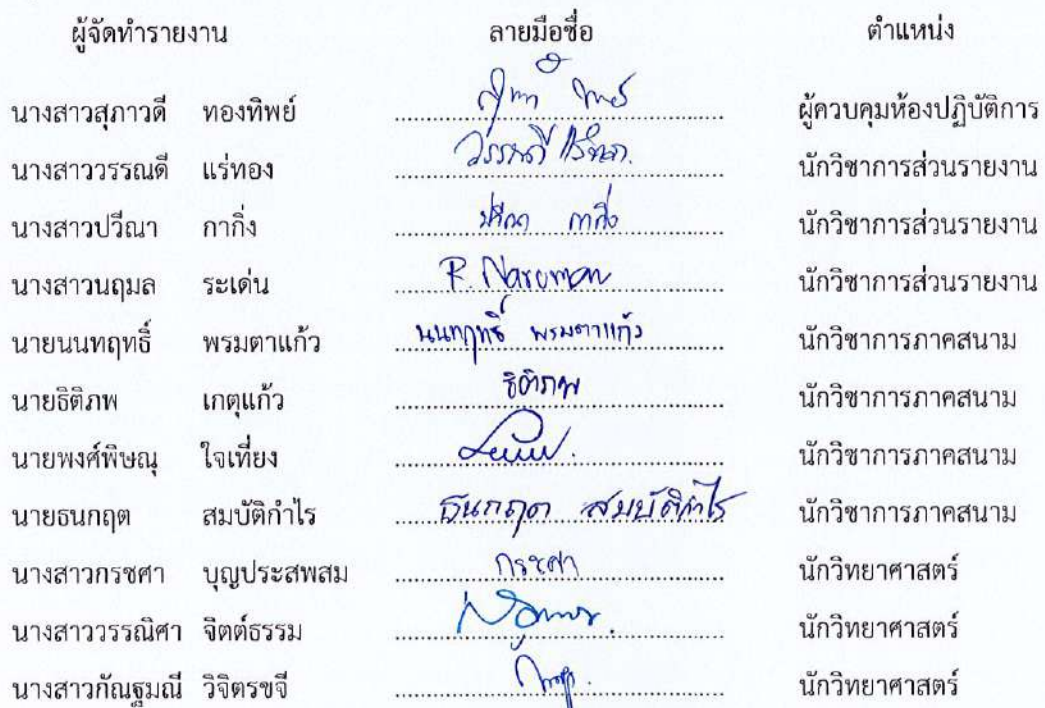 ผู้จัดทำรายงาน ลายมือชื่อ ตำแหน่ง
นางสาวสุภาวดี ทองทิพย์ ผู้ควบคุมห้องปฏิบัติการ
นางสาววรรณดี แร่ทอง วรรณดี แร่ทอง นักวิชาการส่วนรายงาน
นางสาวปวีณา กากิ่ง ปวีณา กากิ่ง นักวิชาการส่วนรายงาน
นางสาวนฤมล ระเด่น R. Naruman นักวิชาการส่วนรายงาน
นายนนทฤทธิ์ พรมตาแก้ว นนทฤทธิ์ พรมตาแก้ว นักวิชาการภาคสนาม
นายธิติภพ เกตุแก้ว ธิติภพ นักวิชาการภาคสนาม
นายพงศ์พิษณุ ใจเที่ยง นักวิชาการภาคสนาม
นายธนกฤต สมบัติกำไร ธนกฤต สมบัติกำไร นักวิชาการภาคสนาม
นางสาวกรชศา บุญประสพสม กรชศา นักวิทยาศาสตร์
นางสาววรรณิศา จิตต์ธรรม นักวิทยาศาสตร์
นางสาวกัณฐมณี วิจิตรขจี นักวิทยาศาสตร์